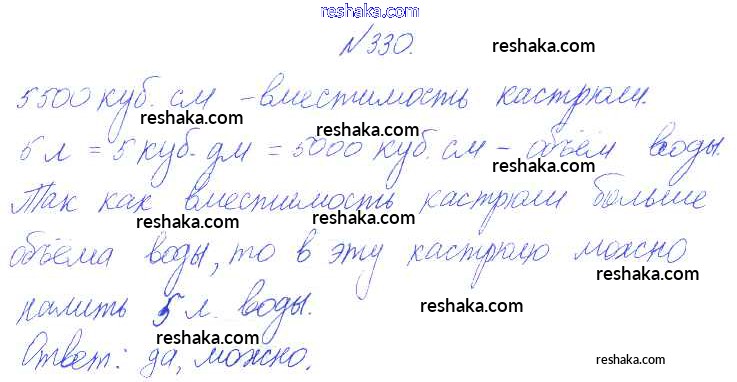 reshaka.com
№330. reshaka.com
5500 куб. см - вместимость кастрюли.
reshaka.com reshaka.com
5 л = 5 куб. дм = 5000 куб. см - объём воды.
reshaka.com reshaka.com
Так как вместимость кастрюли больше
reshaka.com reshaka.com
объёма воды, то в эту кастрюлю можно
reshaka.com
налить 5 л. воды.
reshaka.com reshaka.com
Ответ: да, можно.
reshaka.com